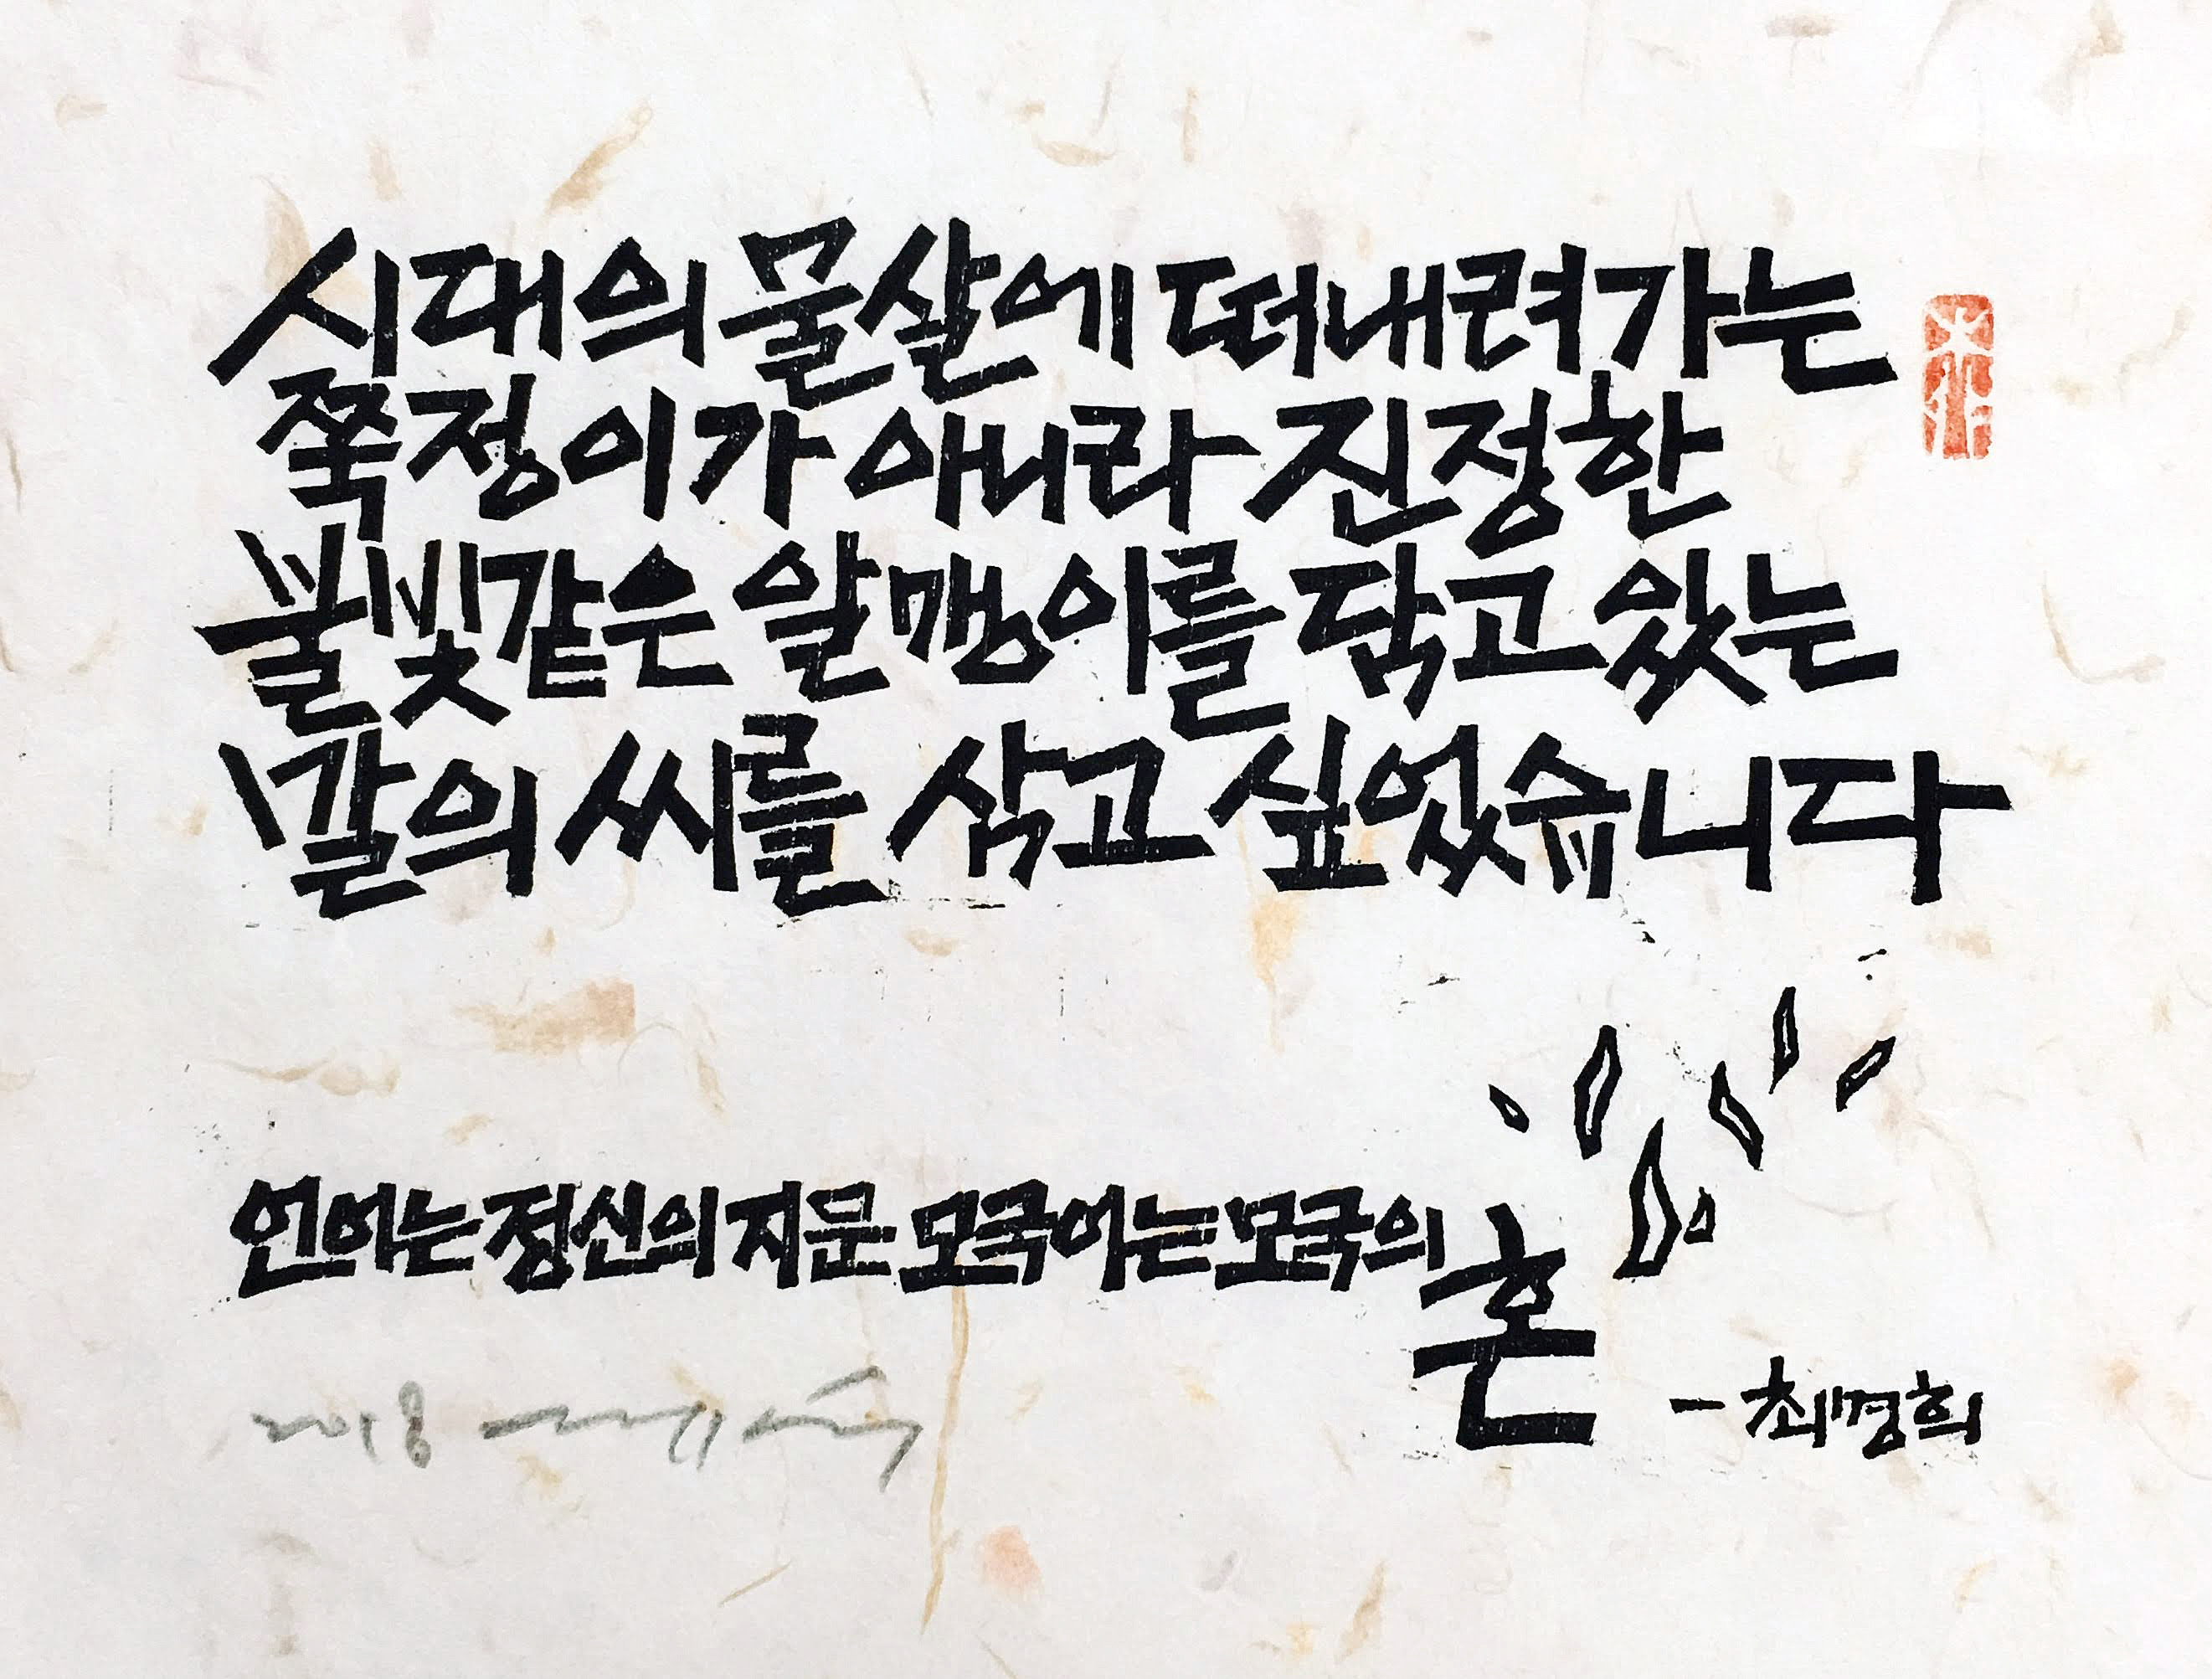 시대의 물살에 떠내려가는
쭉정이가 아니라 진정한
불빛같은 알맹이를 담고 있는
말의 씨를 심고 싶었습니다
언어는 정신의 지문 모국어는 모국의 혼
- 최명희
2018